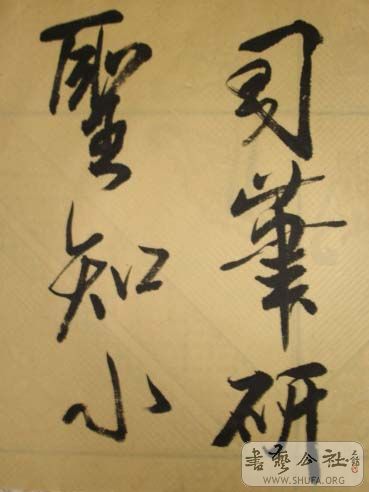 司筆研
聖知小
書藝公社
WWW.SHUFA.ORG